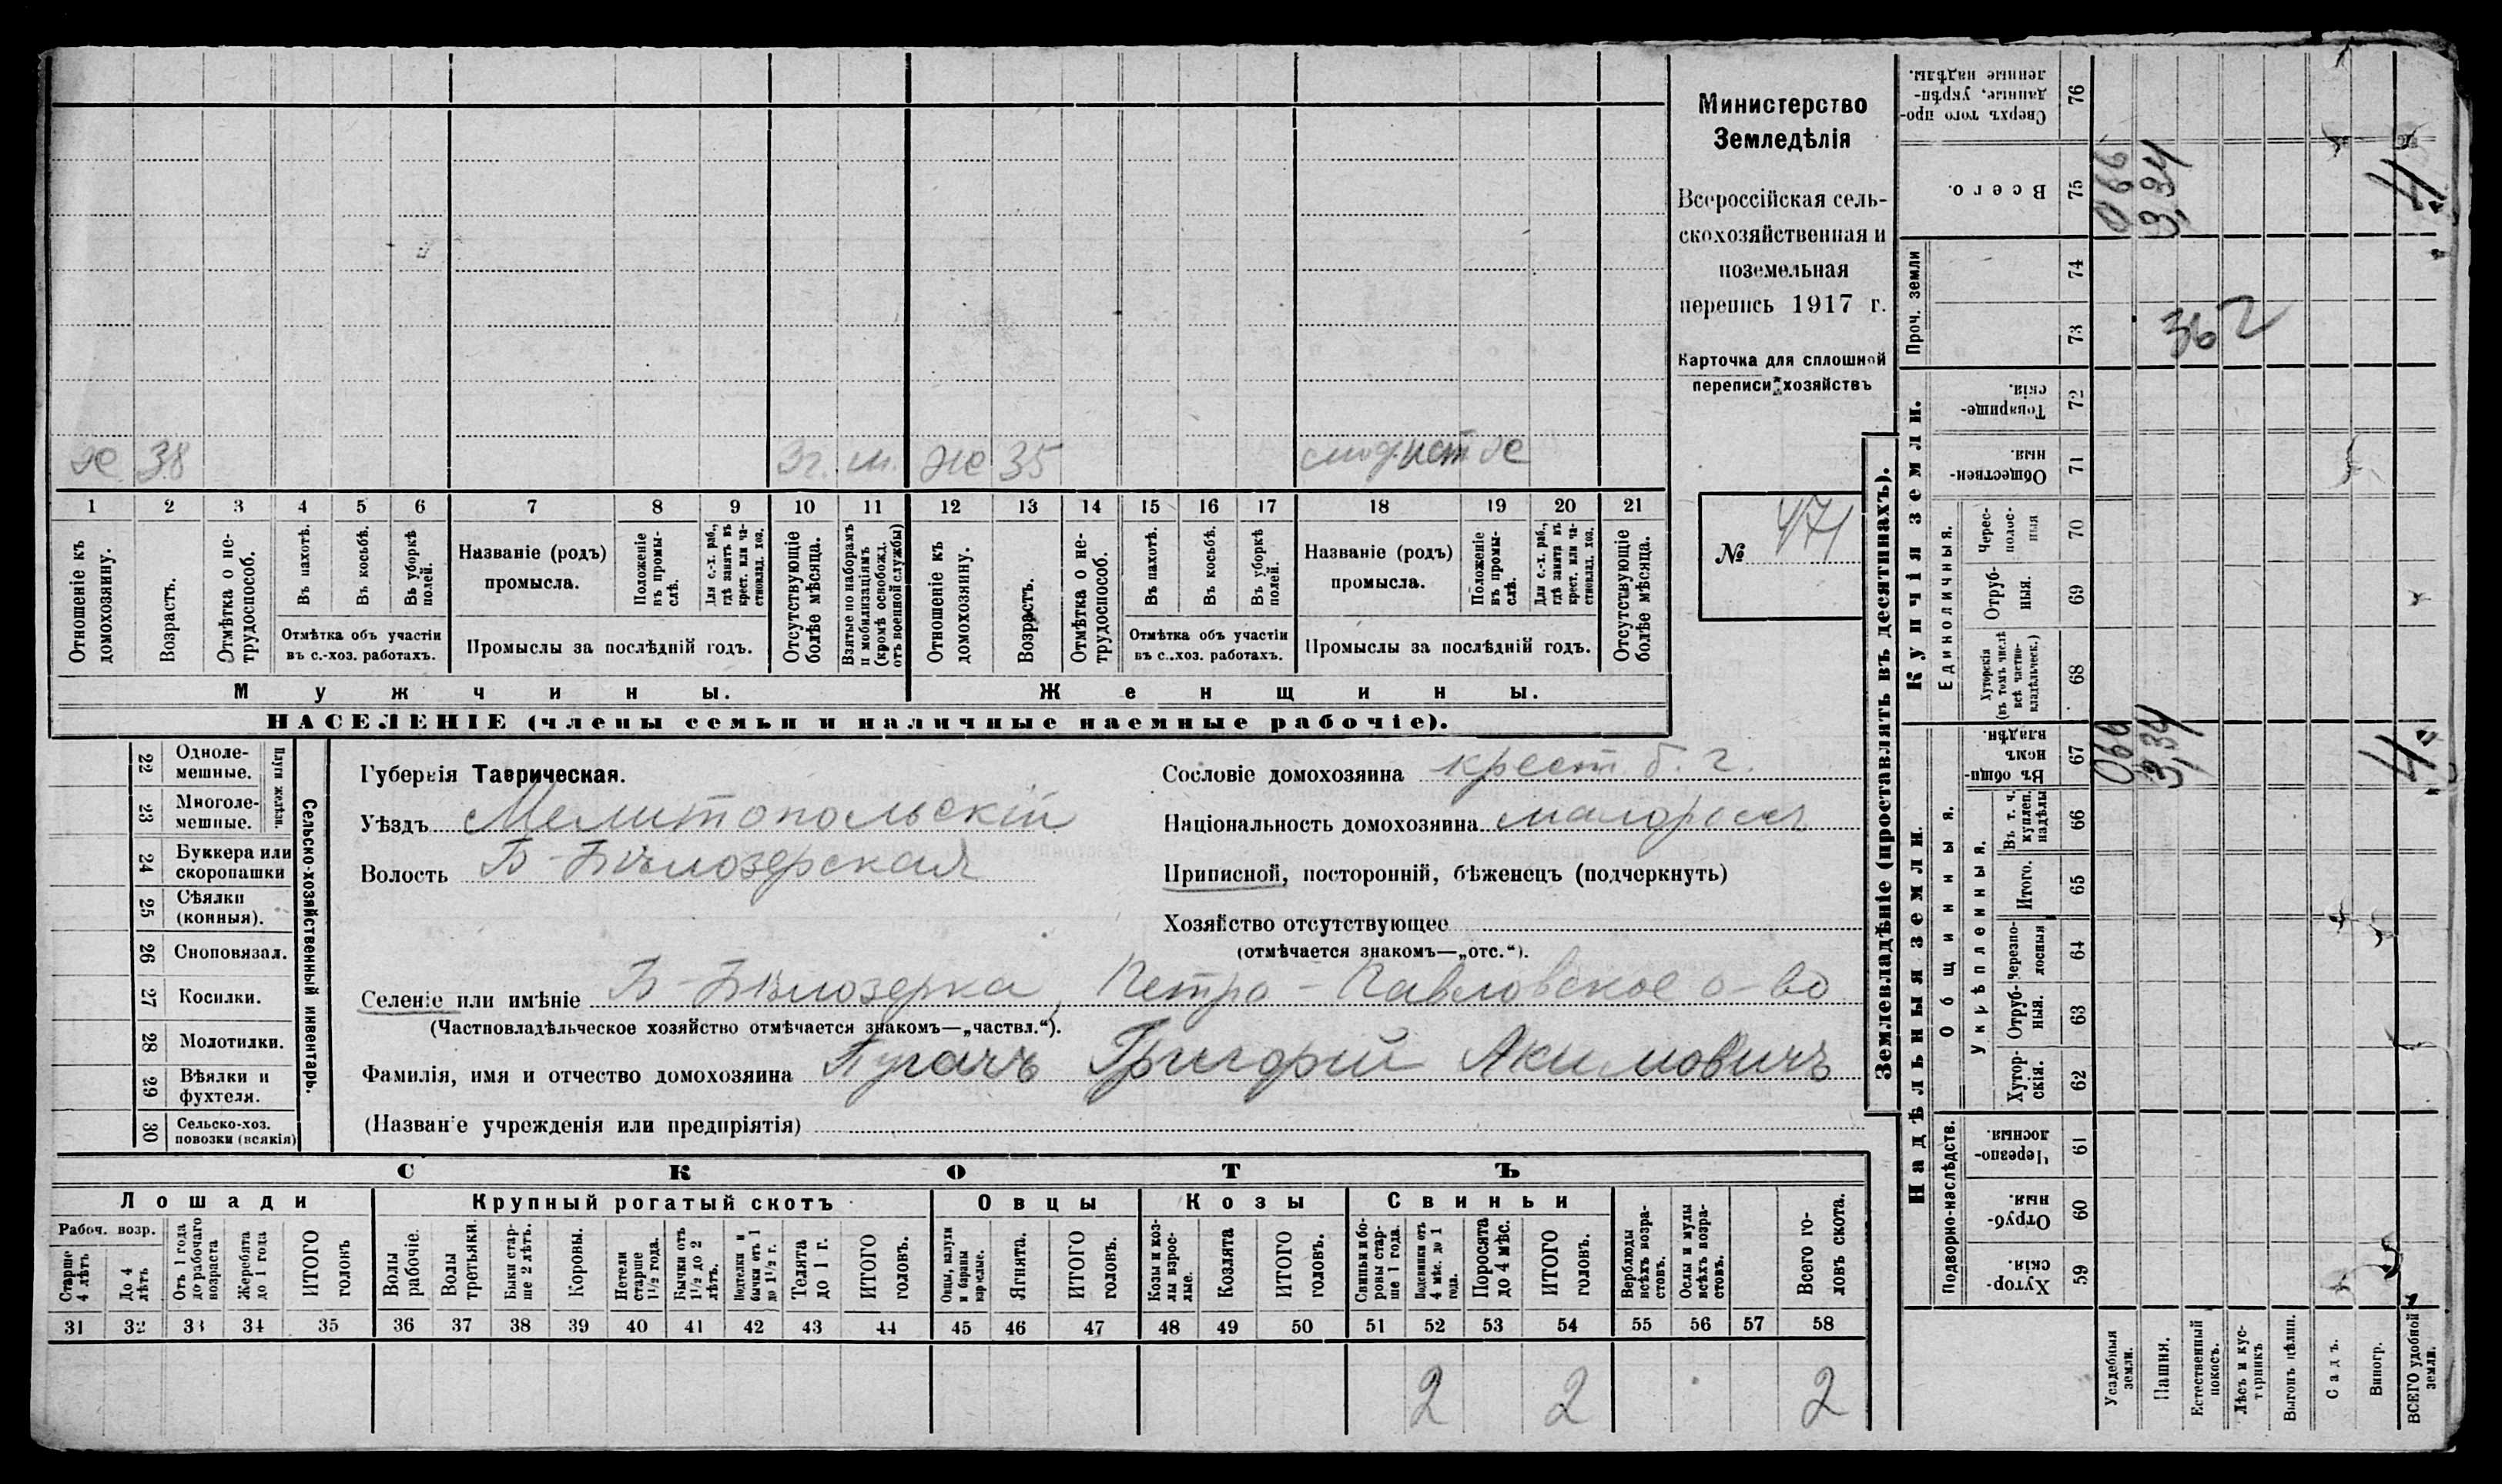 Министерство
Земледѣлія
Всероссійская сель-
скохозяйственная и
поземельная
перепись 1917 г.
Карточка для сплошной
переписи хозяйствъ
№ 471
х 38 Эг. м. Же 35 модистке
1 2 3 4 5 6 7 8 9 10 11 12 13 14 15 16 17 18 19 20 21
Отношеніе къ домохозяину.
Возрастъ.
Отмѣтка о не-трудоспособ.
Въ пахотѣ.
Въ косьбѣ.
Въ уборкѣ полей.
Отмѣтка объ участіи
въ с.-хоз. работахъ.
Названіе (родъ)
промысла.
Положеніе въ промы-слѣ.
Для с.-х. раб., гдѣ занятъ въ крест. или ча-стновлад. хоз.
Промыслы за послѣдній годъ.
Отсутствующіе болѣе мѣсяца.
Взятые по наборамъ и мобилизаціямъ (кромѣ освобожд. отъ военной службы)
Отношеніе къ домохозяину.
Возрастъ.
Отмѣтка о не-трудоспособ.
Въ пахотѣ.
Въ косьбѣ.
Въ уборкѣ полей.
Отмѣтка объ участіи
въ с.-хоз. работахъ.
Названіе (родъ)
промысла.
Положеніе въ промы-слѣ.
Для с.-х. раб., гдѣ занята въ крест. или ча-стновлад. хоз.
Промыслы за послѣдній годъ.
Отсутствующіе болѣе мѣсяца.
Мужчины. Женщины.
НАСЕЛЕНІЕ (члены семьи и наличные наемные рабочіе).
Сельско-хозяйственный инвентарь.
Плуги желѣзн.
22 Одноле-мешные.
23 Многоле-мешные.
24 Буккера или скоропашки
25 Сѣялки (конныя).
26 Сноповязал.
27 Косилки.
28 Молотилки.
29 Вѣялки и фухтеля.
30 Сельско-хоз. повозки (всякія)
Губернія Таврическая.
Уѣздъ Мелитопольскій
Волость Б-Бѣлозерская
Сословіе домохозяина крест. б. г.
Національность домохозяина малоросс
Приписной, посторонній, бѣженецъ (подчеркнуть)
Хозяйство отсутствующее
(отмѣчается знакомъ—„отс.“).
Селеніе или имѣніе Б-Бѣлозерка, Петро-Павловское о-во
(Частновладѣльческое хозяйство отмѣчается знакомъ—„частвл.“).
Фамилія, имя и отчество домохозяина Пугачъ Григорій Акимовичъ
(Названіе учрежденія или предпріятія)
СКОТЪ
Лошади Крупный рогатый скотъ Овцы Козы Свиньи
Рабоч. возр.
Старше 4 лѣтъ
До 4 лѣтъ
Отъ 1 года до рабочаго возраста
Жеребята до 1 года
ИТОГО головъ
Волы рабочіе.
Волы третьяки.
Быки стар-ше 2 лѣтъ.
Коровы.
Нетели старше 1½ года.
Бычки отъ 1½ до 2 лѣтъ.
Нетелки и бычки отъ 1 до 1½ г.
Телята до 1 г.
ИТОГО головъ.
Овцы, валухи и бараны взрослые.
Ягнята.
ИТОГО головъ.
Козы и коз-лы взрос-лые.
Козлята
ИТОГО головъ.
Свиньи и бо-ровы стар-ше 1 года.
Подсвинки отъ 4 мѣс. до 1 года.
Поросята до 4 мѣс.
ИТОГО головъ.
Верблюды всѣхъ возра-стовъ.
Ослы и мулы всѣхъ возра-стовъ.
Всего го-ловъ скота.
31 32 33 34 35 36 37 38 39 40 41 42 43 44 45 46 47 48 49 50 51 52 53 54 55 56 57 58
2 2 2
Землевладѣніе (проставлять въ десятинахъ).
Надѣльныя земли. Купчія земли. Проч. земли
Подворно-наслѣдств. Общинныя. Укрѣпленныя. Единоличныя.
Хутор-скія. 59
Отруб-ныя. 60
Черезпо-лосныя. 61
Хутор-скія. 62
Отруб-ныя. 63
Черезпо-лосныя 64
Итого. 65
Въ т. ч. куплен. надѣлы 66
Въ общи-номъ владѣн. 67
Хуторскія (въ томъ числѣ всѣ частно-владѣльческ.) 68
Отруб-ныя. 69
Черес-полос-ныя 70
Обществен-ныя. 71
Товарище-скія. 72
73
74
Всего. 75
Сверхъ того про-данные, укрѣп-ленные надѣлы. 76
Усадебныя земли.
Пашня.
Естественный покосъ.
Лѣсъ и кус-тарникъ
Выгонъ цѣлин.
Садъ.
Виногр.
ВСЕГО удобной земли.
066 3,34 4
362
066 3,34 4